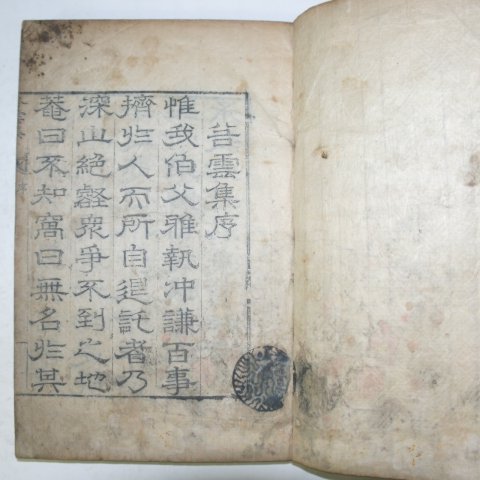 苔雲集序
惟我伯父雅執冲謙百事
擠非人而所自退託者乃
深山絕壑衆爭不到之地
菴曰不知窩曰無名非其